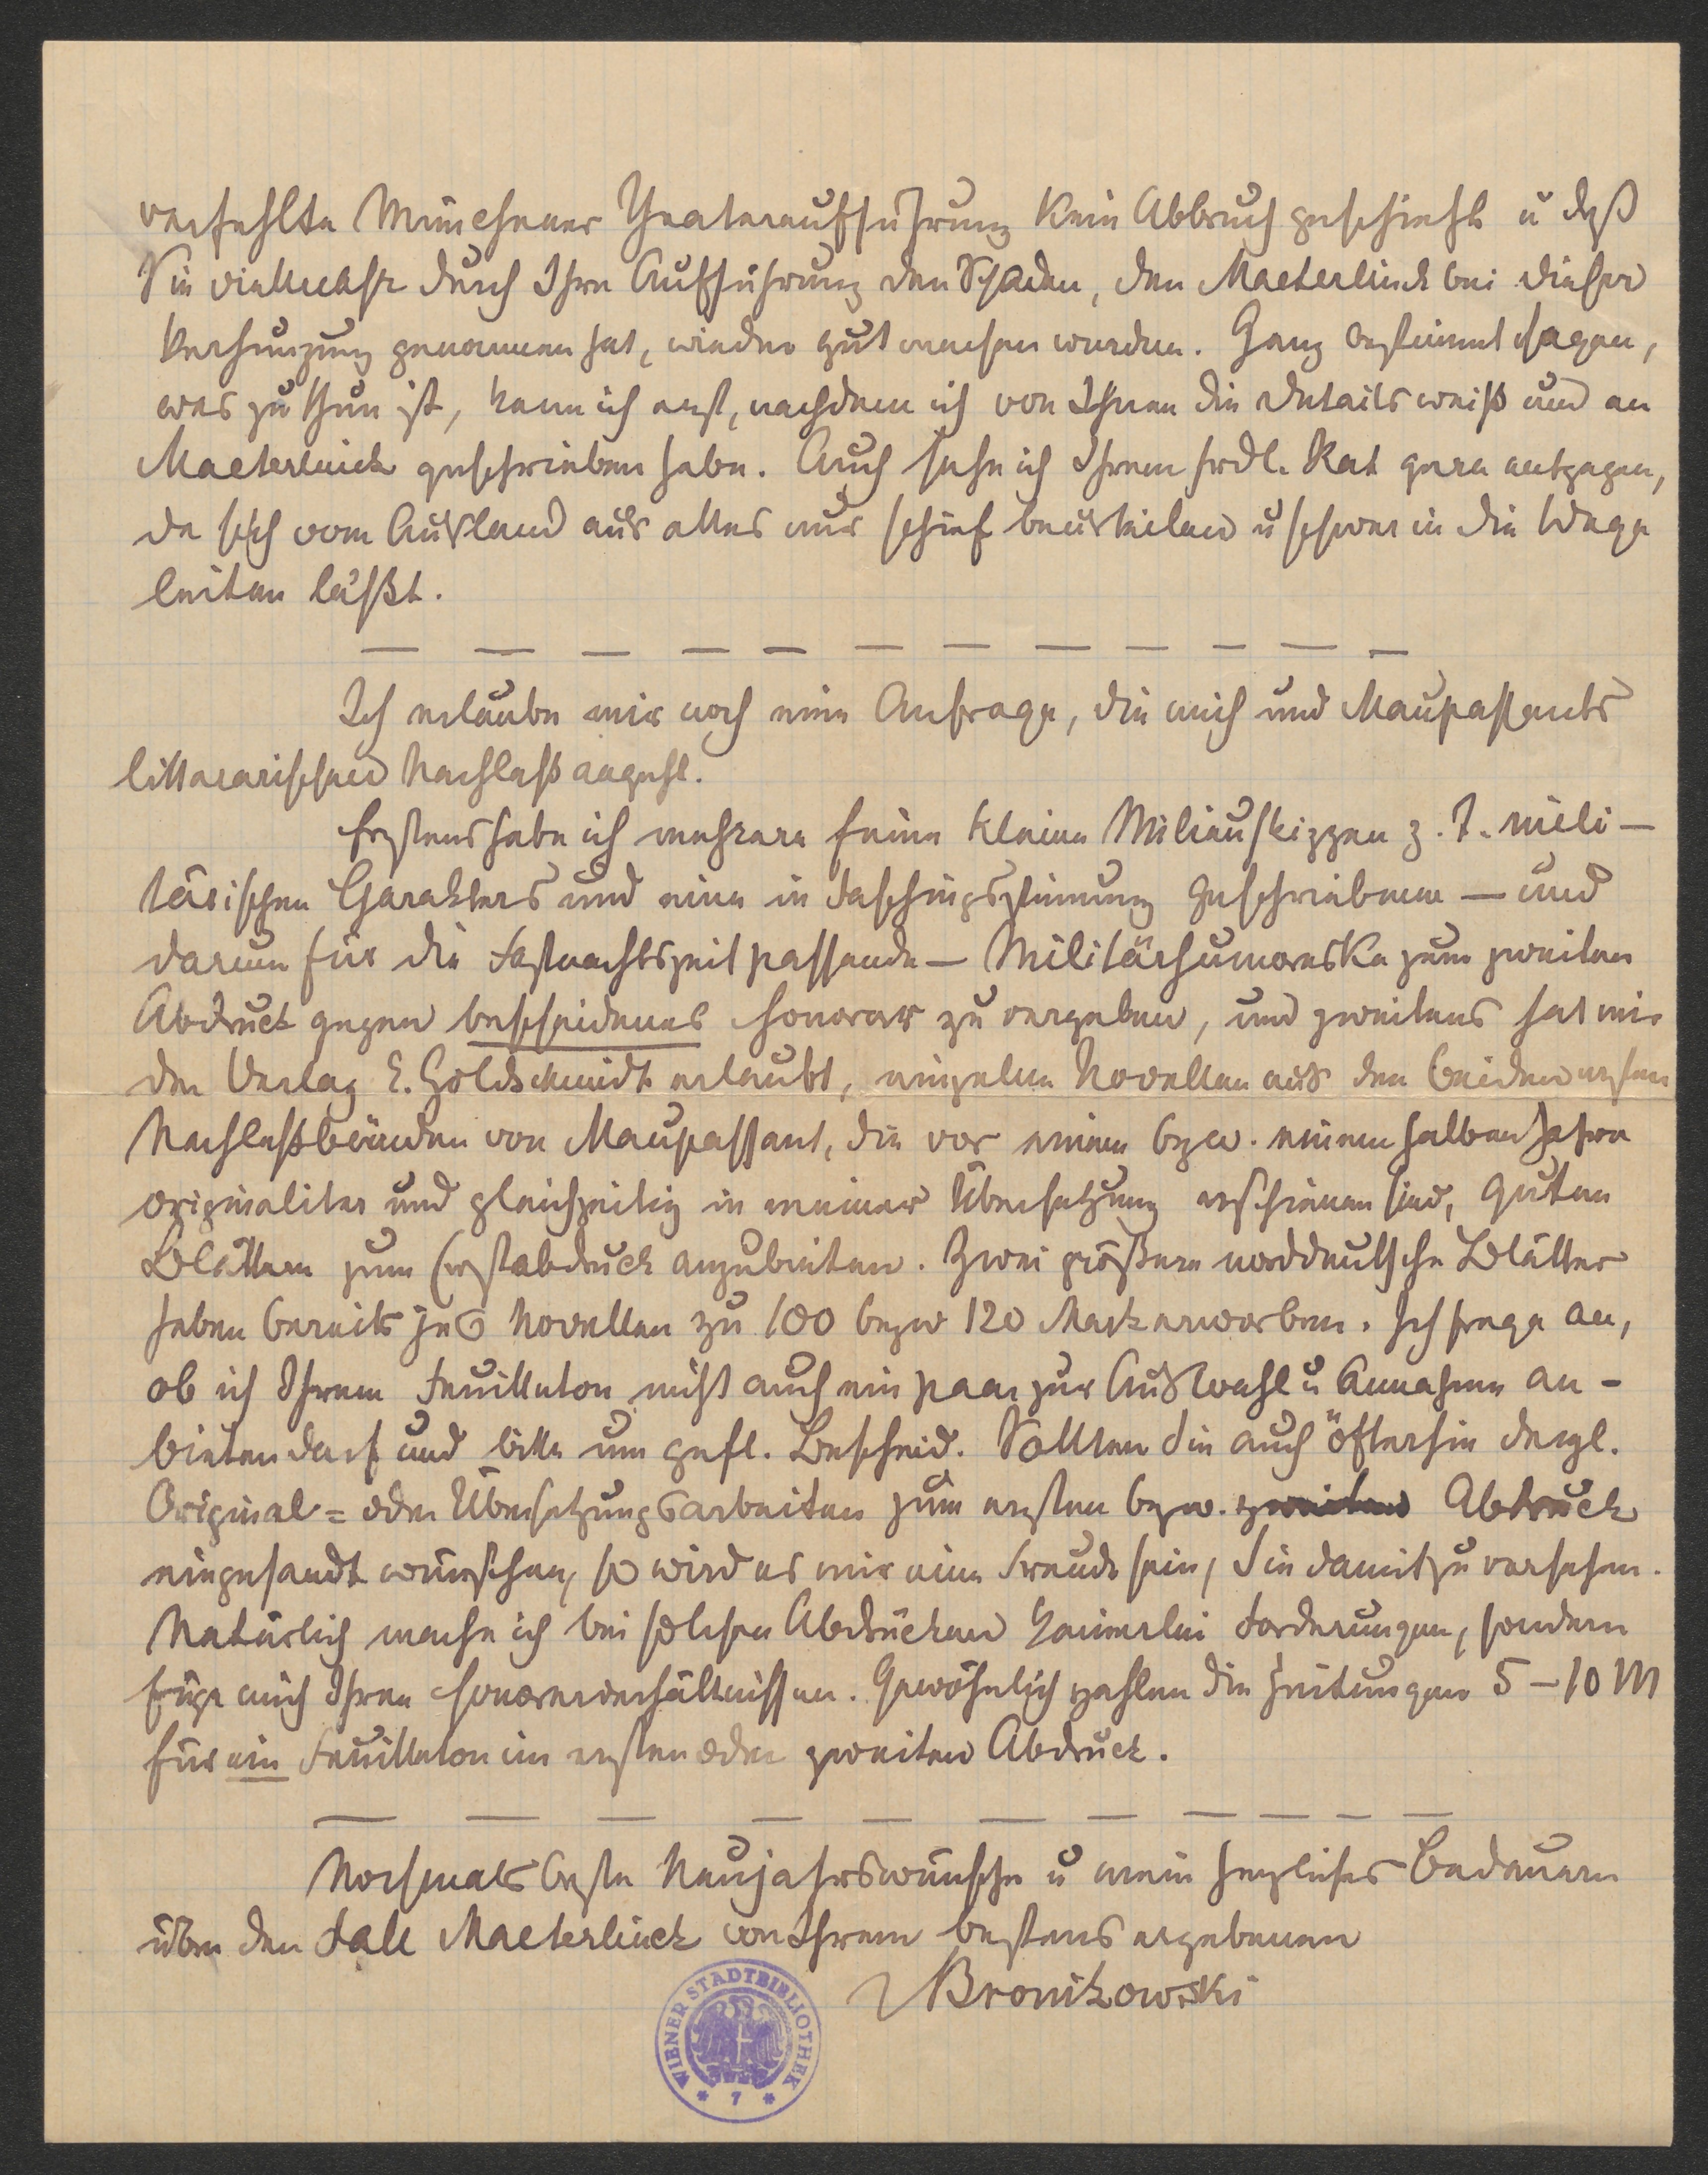 verfehlte Münchener Theateraufführung kein Abbruch geschieht u daß
Sie vielmehr durch Ihre Aufführung den Schaden, den Maeterlinck bei dieser
Verhunzung genommen hat, wieder gut machen würden. Ganz bestimmt sagen,
was zu thun ist, kann ich erst, nachdem ich von Ihnen die Details weiß und an
Maeterlinck geschrieben habe. Auch sehe ich Ihrem frdl. Rat gern entgegen,
da sich vom Ausland aus alles nur schief beurteilen u schwer in die Wege
leiten läßt.
— — — — — — — — — — — —
Ich erlaube mir noch eine Anfrage, die mich und Maupassants
litterarischen Nachlaß angeht.
Erstens habe ich mehrere feine kleine Milieuskizzen z. T. mili-
tärischen Charakters und eine in Faschingsstimmung geschriebene — und
darum für die Fastnachtszeit passende — Militärhumoreske zum zweiten
Abdruck gegen bescheidenes Honorar zu vergeben, und zweitens hat mir
der Verlag E. Goldschmidt erlaubt, einzelne Novellen aus den beiden ersten
Nachlaßbänden von Maupassant, die vor einem bzw. einem halben Jahre
originaliter und gleichzeitig in meiner Übersetzung erschienen sind, guten
Blättern zum Erstabdruck anzubieten. Zwei größere norddeutsche Blätter
haben bereits je 6 Novellen zu 100 bezw 120 Mark erworben. Ich frage an,
ob ich Ihrem Feuilleton nicht auch ein paar zur Auswahl u Annahme an-
bieten darf und bitte um gefl. Bescheid. Sollten Sie auch öfterhin dergl.
Original= oder Übersetzungsarbeiten zum ersten bzw. zweiten Abdruck
eingesandt wünschen, so wird es mir eine Freude sein, Sie damit zu versehen.
Natürlich mache ich bei solchen Abdrücken keinerlei Forderungen, sondern
füge mich Ihren Honorarverhältnissen. Gewöhnlich zahlen die Zeitungen 5–10 M
für ein Feuilleton im ersten oder zweiten Abdruck.
— — — — — — — — — — —
Nochmals beste Neujahrswünsche u mein herzliches Bedauern
über den Fall Maeterlinck von Ihrem bestens ergebenen
Bronikowski
WIENER STADTBIBLIOTHEK
* 7 *